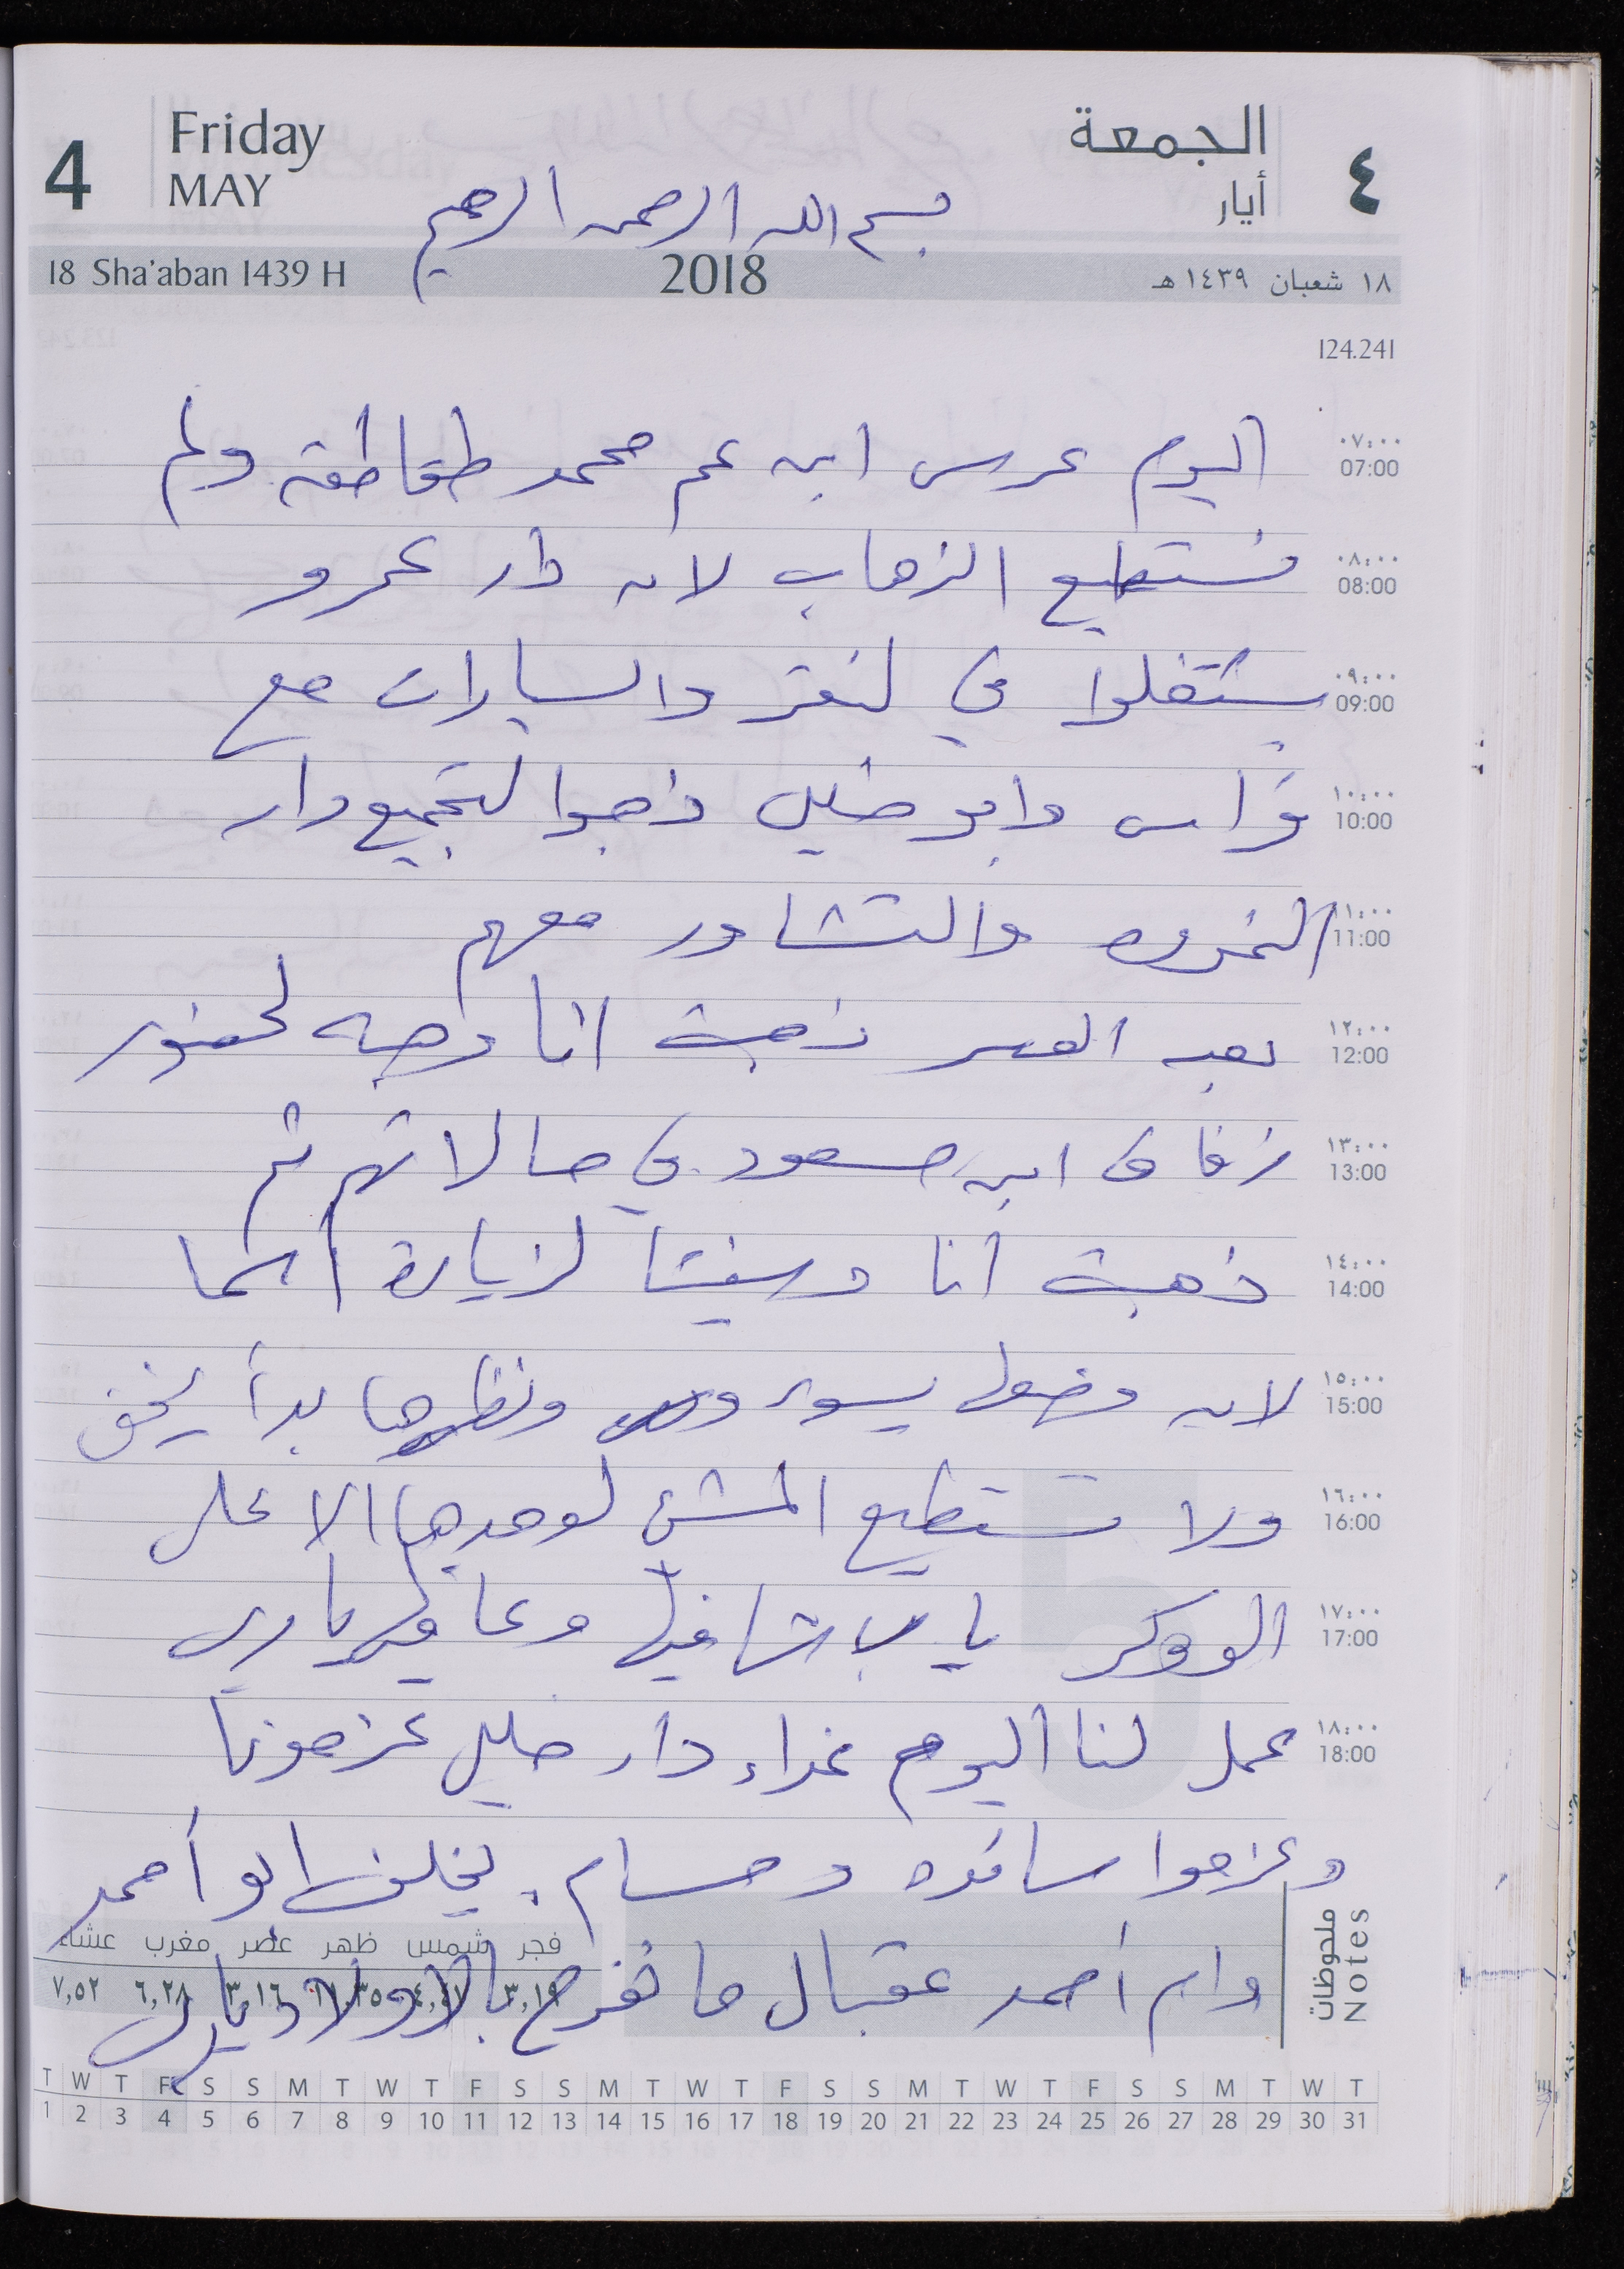 4 Friday MAY
الجمعة أيار ٤
بسم الله الرحمن الرحيم
18 Sha'aban 1439 H 2018 ١٨ شعبان ١٤٣٩ هـ
124.241
٠٧:٠٠ 07:00 اليوم عرس ابن عم محمد طقاطقة ولم
٠٨:٠٠ 08:00 نستطيع الذهاب لان دار عمرو
٠٩:٠٠ 09:00 يشتغلوا في والسيارات مع
١٠:٠٠ 10:00 وابو خليل ذهبوا لتجميع دار
١١:٠٠ 11:00 والتشاور معهم
١٢:٠٠ 12:00 بعد العصر ذهبت انا لحضور
١٣:٠٠ 13:00 زفاف ابن مسعود في صالاتهم ثم
١٤:٠٠ 14:00 ذهبت أنا لزيارة
١٥:٠٠ 15:00 لان وضعها يسوء ونظرها بدأ يخف
١٦:٠٠ 16:00 ولا تستطيع المشي لوحدها الا على
١٧:٠٠ 17:00 الووكر يا رب تشافيها وعافيها يا رب
١٨:٠٠ 18:00 عمل لنا اليوم غداء دار خليل عزمونا
وعزموا وحسام. يخلف ابو أحمد
وام أحمد عقبال ما نفرح بالاولاد يا رب
ملحوظات Notes
فجر شمس ظهر عصر مغرب عشاء
٣,١٩ ٣,١٦ ٦,٢٨ ٧,٥٢
T W T F S S M T W T F S S M T W T F S S M T W T F S S M T W T
1 2 3 4 5 6 7 8 9 10 11 12 13 14 15 16 17 18 19 20 21 22 23 24 25 26 27 28 29 30 31